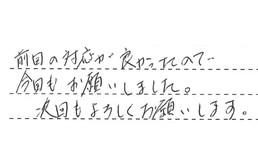 前回の対応が良かったので
今回もお願いしました。
次回もよろしくお願いします。